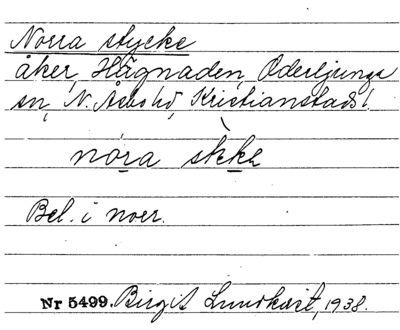 Norra stycke
åker, Hägnaden, Oderljunga
sn, N. Åsbo hd, Kristianstads l.
nóra stɛkə
Bel. i norr.
Nr 5499. Birgit Lundkvist, 1938.